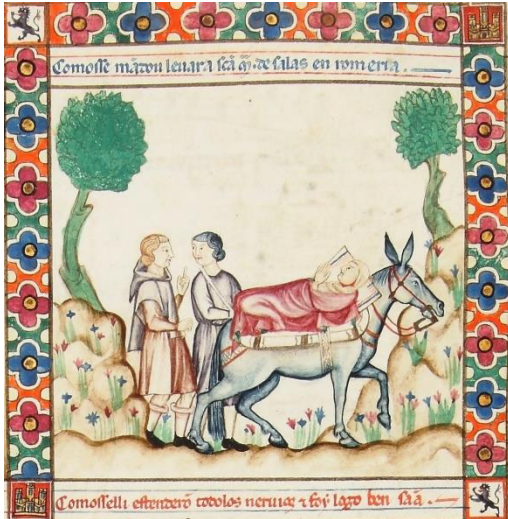 Comosse mãdou leuara scã m̃. de salas en romeria.
Comosselli estenderõ todolos neruios ⁊ foy logo ben sãa.